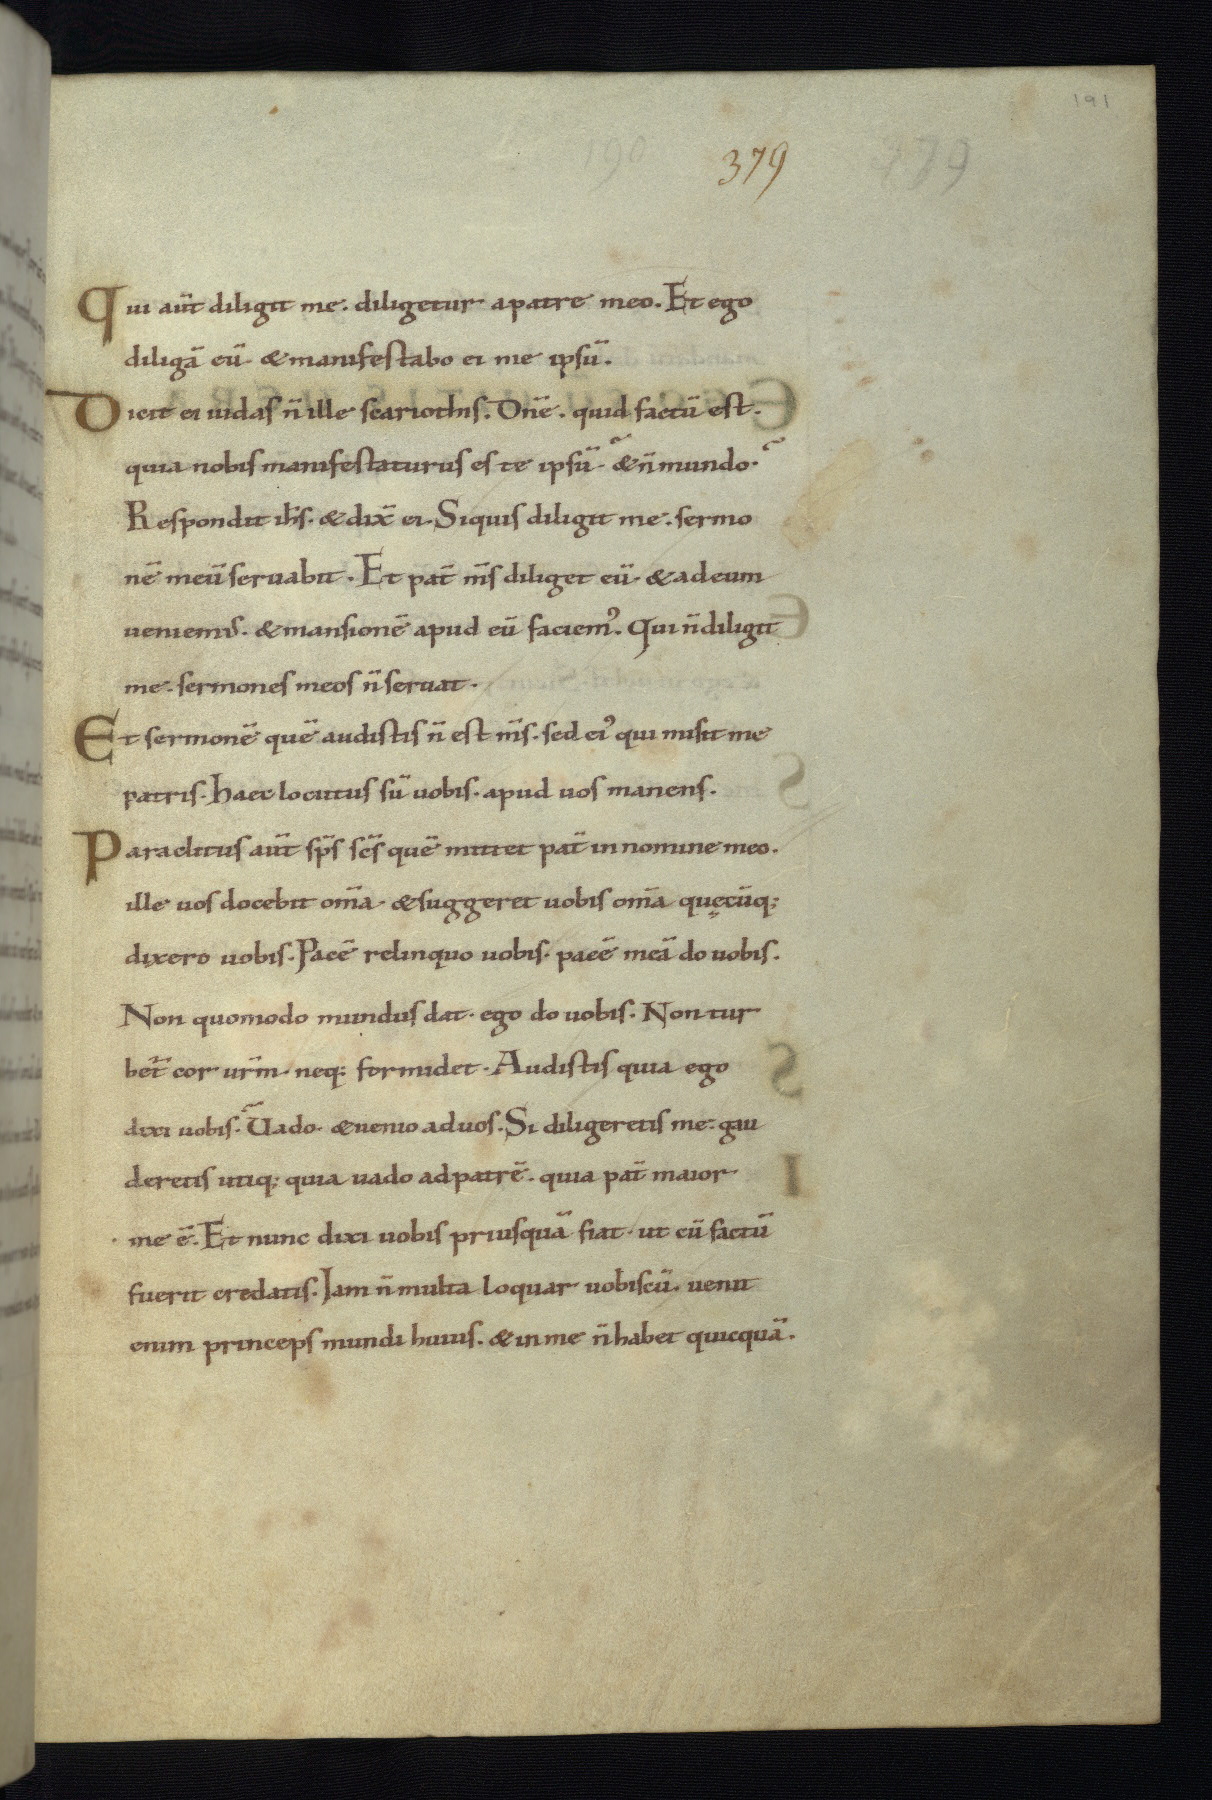 191
190 379
Qui aut̄ diligit me. diligetur a patre meo. Et ego
diligā eū. & manifestabo ei me ipsū.
Dicit ei iudas n̄ ille scariothis. Dn̄e. quid factū est.
quia nobis manifestaturus es te ipsū. & n̄ mundo.
Respondit ih̄s. & dix̄ ei. Siquis diligit me. sermo
nē meū seruabit. Et pat̄ m̄s diliget eū. & ad eum
ueniemus. & mansionē apud eū faciem᾿. Qui n̄ diligit
me. sermones meos n̄ seruat.
Et sermonē quē audistis n̄ est m̄s. sed ei᾿ qui misit me
patris. Haec locutus sū uobis. apud uos manens.
Paraclitus aut̄ sp̄s sc̄s quē mittet pat̄ in nomine meo.
ille uos docebit om̄a. & suggeret uobis om̄a quęcūq;
dixero uobis. Pacē relinquo uobis. pacē meā do uobis.
Non quomodo mundus dat. ego do uobis. Non tur
bet̄ cor ur̄m. neq; formidet. Audistis quia ego
dixi uobis. Uado. & uenio ad uos. Si diligeretis me. gau
deretis utiq; quia uado ad patrē. quia pat̄ maior
me ē. Et nunc dixi uobis priusquā fiat. ut cū factū
fuerit credatis. Iam n̄ multa loquar uobiscū. uenit
enim princeps mundi huius. & in me n̄ habet quicquā.